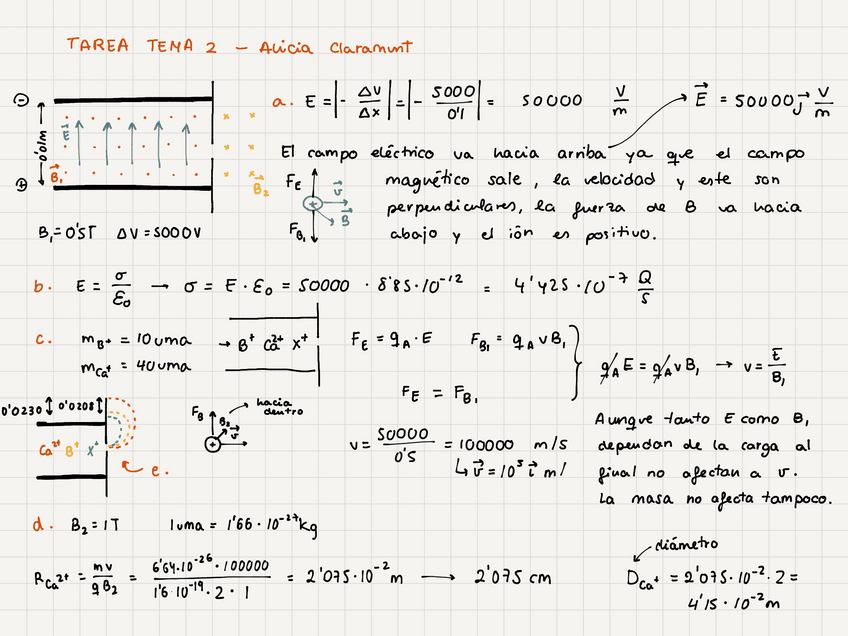 TAREA TEMA 2 - Alicia Claramunt
⊖
0'01m
⊕
E⃗
B⃗₁
B⃗₂
B₁ = 0'5T ΔV = 5000V
a. E = |- ΔV/Δx| = |- 5000/0'1| = 50000 V/m E⃗ = 50000 j⃗ V/m
El campo eléctrico va hacia arriba ya que el campo
magnético sale, la velocidad y este son
perpendiculares, la fuerza de B va hacia
abajo y el ión es positivo.
F_E
v⃗
+
B⃗
F_B₁
b. E = σ/ε₀ → σ = E · ε₀ = 50000 · 8'85·10⁻¹² = 4'425 · 10⁻⁷ Q/S
c. m_B⁺ = 10 uma
m_Ca²⁺ = 40 uma
→ B⁺ Ca²⁺ X⁺
F_E = q_A · E F_B₁ = q_A v B₁
F_E = F_B₁
q_A E = q_A v B₁ → v = E/B₁
v = 50000/0'5 = 100000 m/s
↳ v⃗ = 10⁵ i⃗ m/
Aunque tanto E como B₁
dependan de la carga al
final no afectan a v.
La masa no afecta tampoco.
0'0230 0'0208
Ca²⁺ B⁺ X⁺
e.
F_B
B₂
v⃗
hacia
dentro
d. B₂ = 1T 1uma = 1'66 · 10⁻²⁷ kg
R_Ca²⁺ = mv/qB₂ = 6'64·10⁻²⁶ · 100000/1'6·10⁻¹⁹ · 2 · 1 = 2'075·10⁻² m → 2'075 cm
diámetro
D_Ca⁺ = 2'075·10⁻² · 2 =
4'15 · 10⁻² m